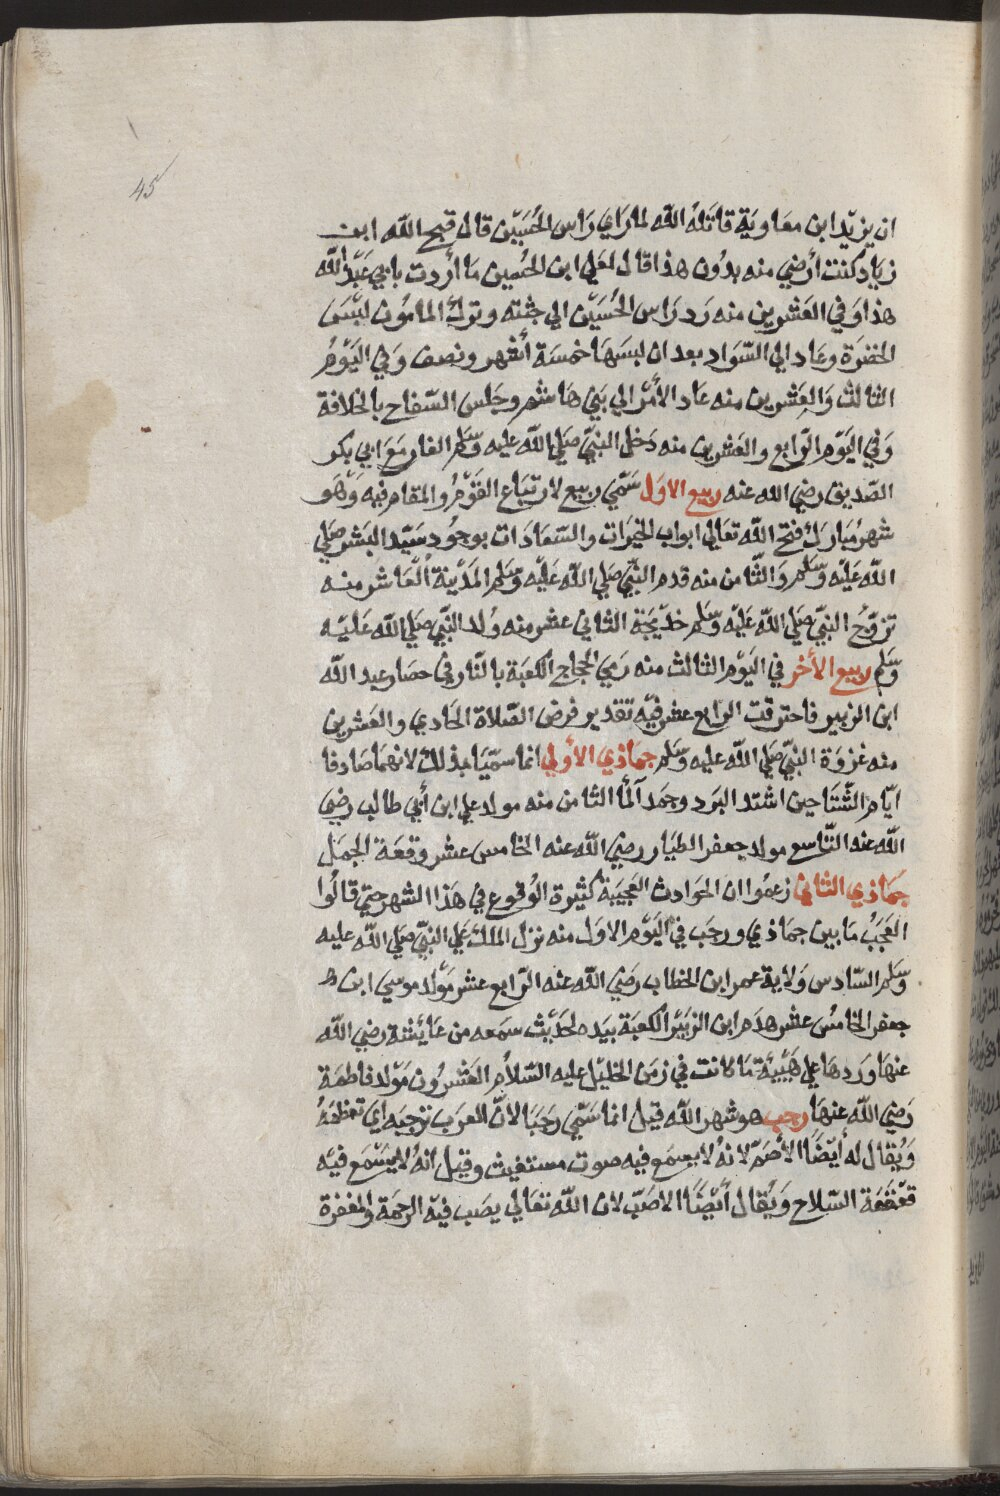 45
ان يزيد ابن معاوية قاتله الله لما راي راس الحسين قال قبح الله ابن
زياد كنت أرضي منه بدون هذا قال لعلي ابن الحسين ما أردت بابي عبد الله
هذا وفي العشرين منه رد راس الحسين الي جثته وترك المامون لبس
الخضرة وعاد الي السواد بعد ان لبسها خمسة أشهر ونصف وفي اليوم
الثالث والعشرين منه عاد الأمر الي بني هاشم وجلس السفاح بالخلافة
وفي اليوم الرابع والعشرين منه دخل النبي صلي الله عليه وسلم الغار مع ابي بكر
الصديق رضي الله عنه ربيع الاول سمي ربيع لارتباع القوم والمقام فيه وهو
شهر مبارك فتح الله تعالي ابواب الخيرات والسعادات بوجود سيد البشر صلي
الله عليه وسلم والثامن منه قدم النبي صلي الله عليه وسلم المدينة العاشر منه
تزوج النبي صلي الله عليه وسلم خديجة الثاني عشر منه ولد النبي صلي الله عليه
وسلم ربيع الأخر في اليوم الثالث منه رمي الحجاج الكعبة بالنار في حصار عبد الله
ابن الزبير فاحترقت الرابع عشر فيه تقدير فرض الصلاة الحادي والعشرين
منه غزوة النبي صلي الله عليه وسلم جماذي الأولي انما سميا بذلك لانهما صادفا
ايام الشتا حين اشتد البرد وجمد آلما الثامن منه مولد علي ابن أبي طالب رضي
الله عنه التاسع مولد جعفر الطيار رضي الله عنه الخامس عشر وقعة الجمل
جماذي الثاني زعموا ان الحوادث العجيبة كثيرة الوقوع في هذا الشهر حتي قالوا
العجب ما بين جماذي ورجب في اليوم الاول منه نزل الملك علي النبي صلي الله عليه
وسلم السادس ولاية عمر ابن الخطاب رضي الله عنه الرابع عشر مولد موسي ابن
جعفر الخامس عشر هدم ابن الزبير الكعبة بيده لحديث سمعه من عايشة رضي الله
عنها وردها علي هيبة ما كانت في زمن الخليل عليه السلام العشرون مولد فاطمة
رضي الله عنها رجب هو شهر الله قيل انما سمي رجبا لان العرب ترجبه اي تعظمه
ويقال له أيضا الأصم لانه لا يسمع فيه صوت مستغيث وقيل انه لا يسمع فيه
قعقعة السلاح ويقال أيضا الاصب لان الله تعالي يصب فيه الرحمة والمغفرة